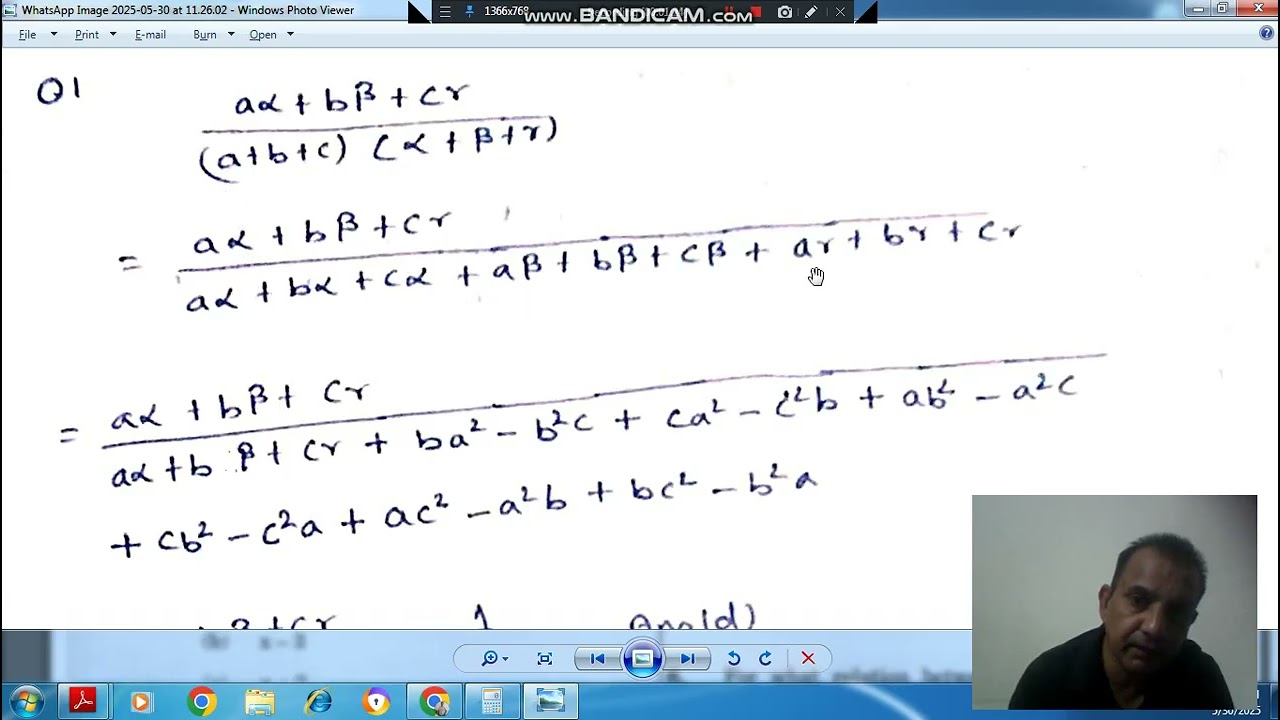 WhatsApp Image 2025-05-30 at 11.26.02 - Windows Photo Viewer
1366x768
www.BANDICAM.com
File Print E-mail Burn Open
Q1
aα + bβ + cr
(a+b+c) (α + β + r)
= aα + bβ + cr
aα + bα + cα + aβ + bβ + cβ + ar + br + cr
= aα + bβ + cr
aα + b β + cr + ba² - b²c + ca² - c²b + ab² - a²c
+ cb² - c²a + ac² - a²b + bc² - b²a
β + cr 1 Ans(d)
5/30/2025